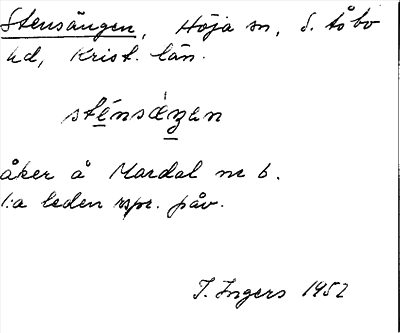 Stensängen, Höja sn, S. Åsbo
hd, Krist. län.
sténsæŋen
åker å Mardal nr 6.
1:a leden rspr. påv.
I. Ingers 1952